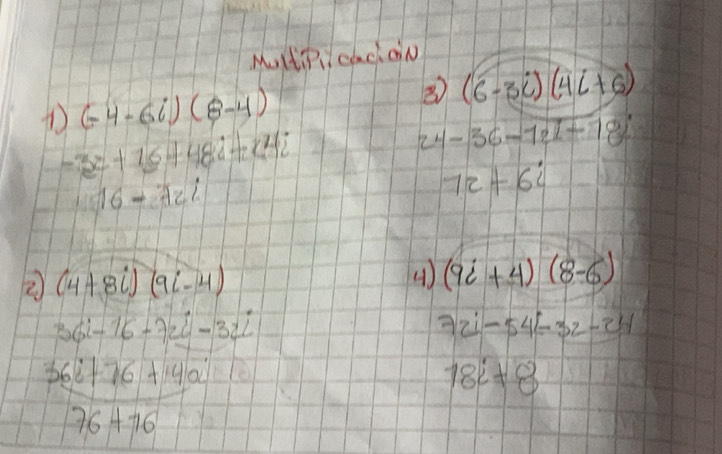 Multiplicación
1) (-4-6i)(8-4)
-32+16+48i+24i
16-72i
2) (4+8i)(9i-4)
36i-16-72i-32i
36i+76+40i
76+76
3) (6-3i)(4i+6)
24-36-12i-18i
72+6i
4) (9i+4)(8-6)
72i-54i-32-24
18i+8